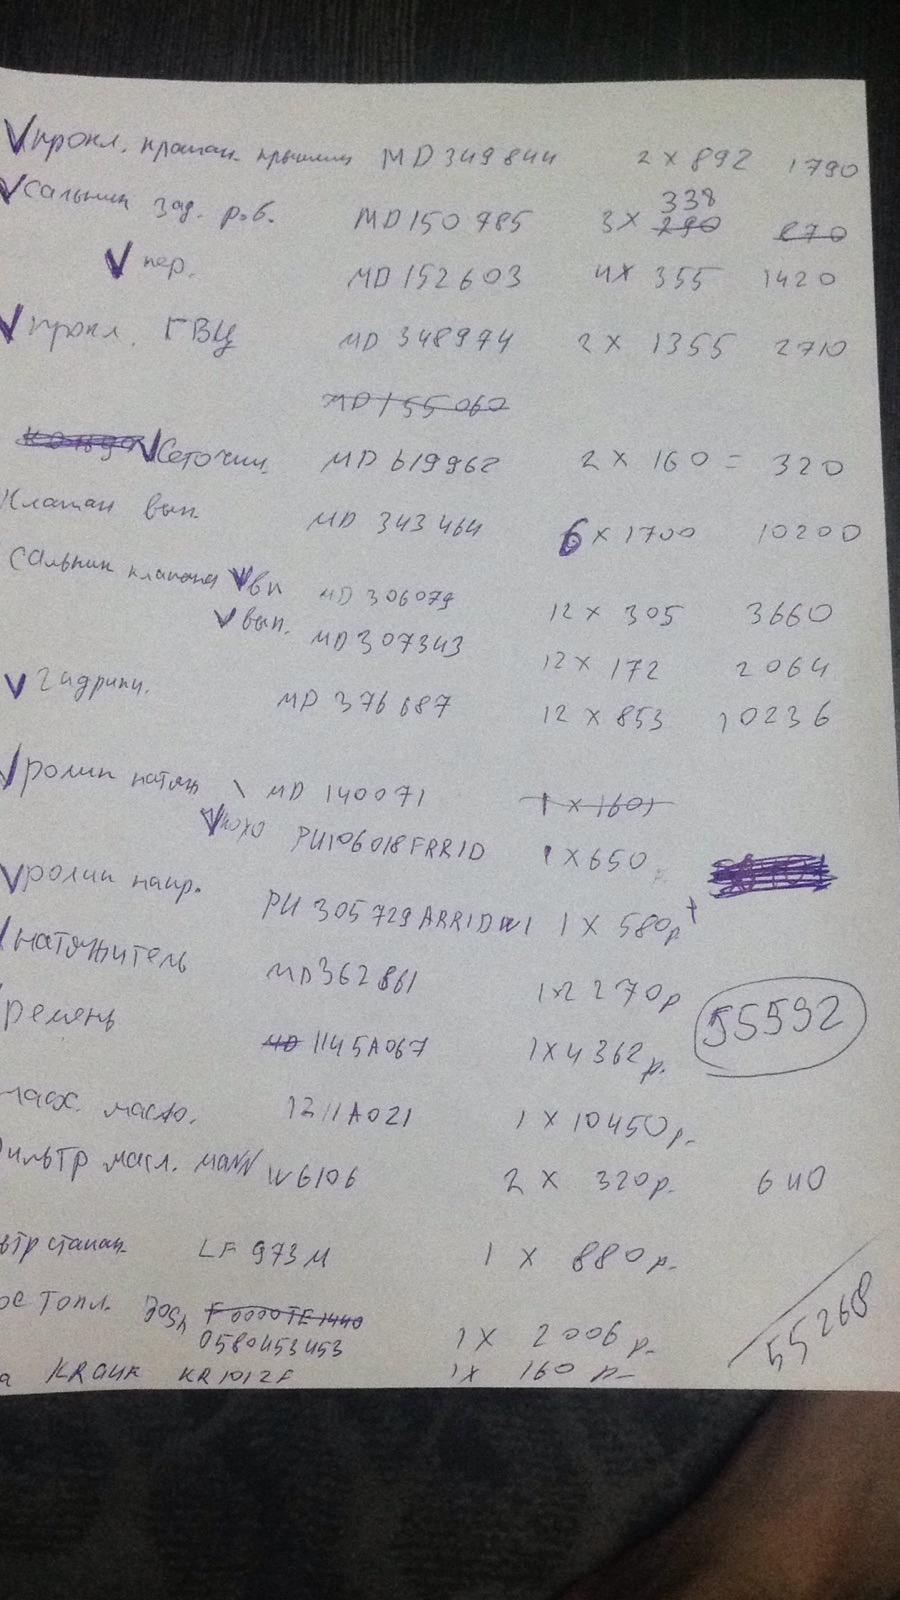 V прокл. клапан. крышки MD349844 2 x 892 1790
V сальник зад. р.в. MD150785 3 x 290 338 870
V пер. MD152603 4 x 355 1420
V прокл. ГВЦ MD 348974 2 x 1355 2710
MD155060
кольцо V сеточки. MD 619962 2 x 160 = 320
клапан вып. MD 343464 6 x 1700 10200
сальник клапана V вп MD 306079 12 x 305 3660
V вып. MD307343 12 x 172 2064
V гидрики. MD 376687 12 x 853 10236
V ролик натяж \ MD 140071 1 x 1601
V PU106018FRR1D 1 x 650 р
V ролик напр. PU305729ARR1D 1 x 580р
натяжитель MD362861 1x2270р
ремень MD 1145A067 1x4362р. 55592
масло. 1211A021 1 x 10450р-
ильтр масл. MANN W6106 2 x 320р. 640
LF 973M 1 x 880р-
топл. BOSH F0000TE1440
0580453453 1 x 2006р- 55268
KRAUF KR1012F 1x 160 р-